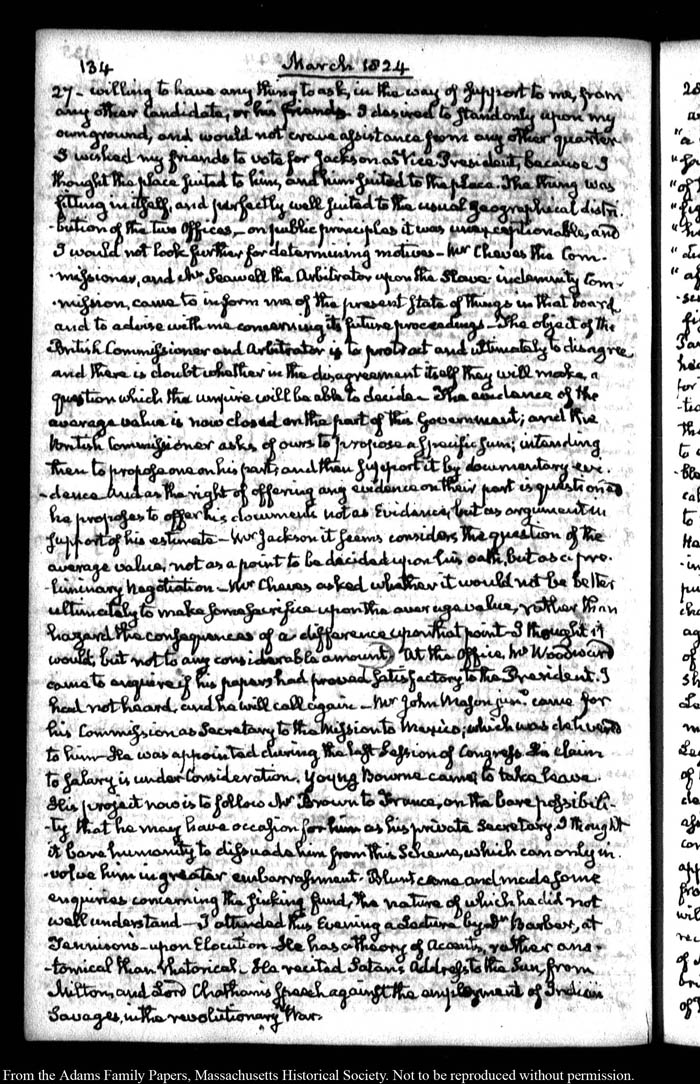 134
March 1824
27 - willing to have any thing to ask, in the way of support to me, from
any other Candidate, or his friends. I desired to stand only upon my
own ground, and would not crave assistance from any other quarter
I wished my friends to vote for Jackson as Vice President, because I
thought the place suited to him, and him suited to the place. The thing was
fitting in itself, and perfectly well suited to the usual geographical distri-
-bution of the two Offices, - on public principles it was unexceptionable, and
I would not look further for determining motives - Mr Cheves the Com-
-missioner, and Mr Seawell the Arbitrator upon the Slave indemnity Com-
-mission, came to inform me of the present state of things in that board
and to advise with me concerning its future proceedings - The object of the
British Commissioner and Arbitrator is to protract and ultimately to disagree
and there is doubt whether in the disagreement itself they will make a
question which the umpire will be able to decide - The evidence of the
average value is now closed on the part of this Government; and the
British Commissioner asks of ours to propose a specific sum; intending
then to propose one on his part, and then support it by documentary evi-
-dence. And as the right of offering any evidence on their part is questioned
he proposes to offer his documents not as Evidence, but as argument in
support of his estimate - Mr Jackson it seems considers the question of the
average value, not as a point to be decided upon his oath, but as a pre-
-liminary Negotiation - Mr Cheves asked whether it would not be better
ultimately to make some sacrifice upon the average value, rather than
hazard the consequences of a difference upon that point - I thought it
would, but not to any considerable amount. At the Office, Mr Woodward
came to enquire if his papers had proved satisfactory to the President. I
had not heard, and he will call again - Mr John Mason junr. came for
his Commission as Secretary to the Mission to Mexico; which was delivered
to him - He was appointed during the last Session of Congress. His claim
to Salary is under consideration. Young Bowne came to take leave.
His project now is to follow Mr Brown to France, on the bare possibili-
-ty that he may have occasion for him as his private Secretary. I thought
it bare humanity to dissuade him from this Scheme, which can only in-
-volve him in greater embarrassment. Blunt came and made some
enquiries concerning the sinking fund, the nature of which he did not
well understand - I attended this Evening a Lecture by Dr Barber, at
Tennison's - upon Elocution - He has a theory of Accents, rather ana-
-tomical than rhetorical - He recited Satan's Address to the Sun, from
Milton, and Lord Chatham's speech against the employment of Indian
Savages, in the revolutionary War.
From the Adams Family Papers, Massachusetts Historical Society. Not to be reproduced without permission.